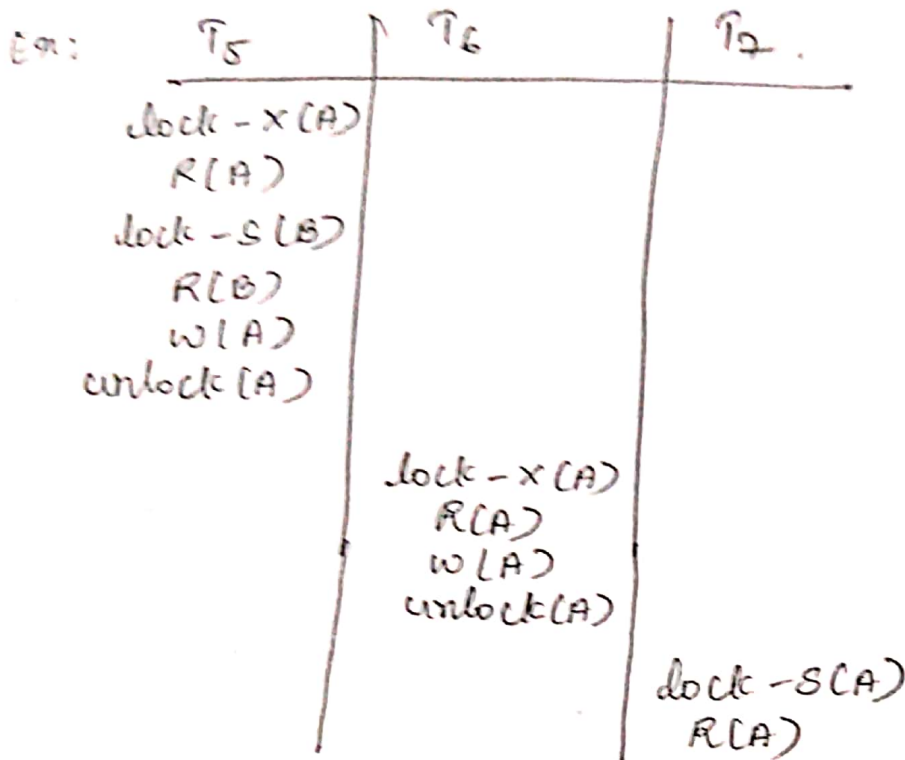 Ex: T5 T6 T7.
lock-X(A)
R(A)
lock-S(B)
R(B)
W(A)
unlock(A)
lock-X(A)
R(A)
W(A)
unlock(A)
lock-S(A)
R(A)